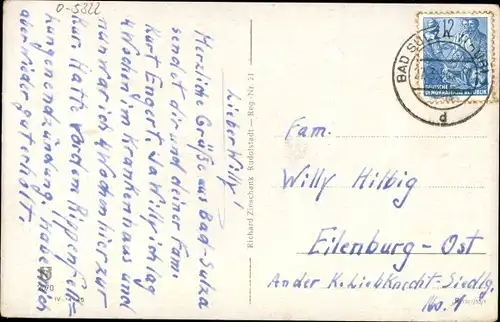 O-5322
Lieber Willy!
Herzliche Grüße aus Bad-Sulza
sendet dir und deiner Fam.
Kurt Engert. Ja Willy ich lag
4 Wochen im Krankenhaus und
nun war ich 4 Wochen hier zur
Kur. Hatte vordem Rippenfell-
Lungenentzündung, habe mich
aber wieder guterholt.
Richard Zieschank Rudolstadt – Reg.-Nr. 21
BAD SULZA
d
12
DEUTSCHE
DEMOKRATISCHE REPUBLIK
Fam.
Willy Hilbig
Eilenburg-Ost
An der K. Liebknecht-Siedlg.
No. 1